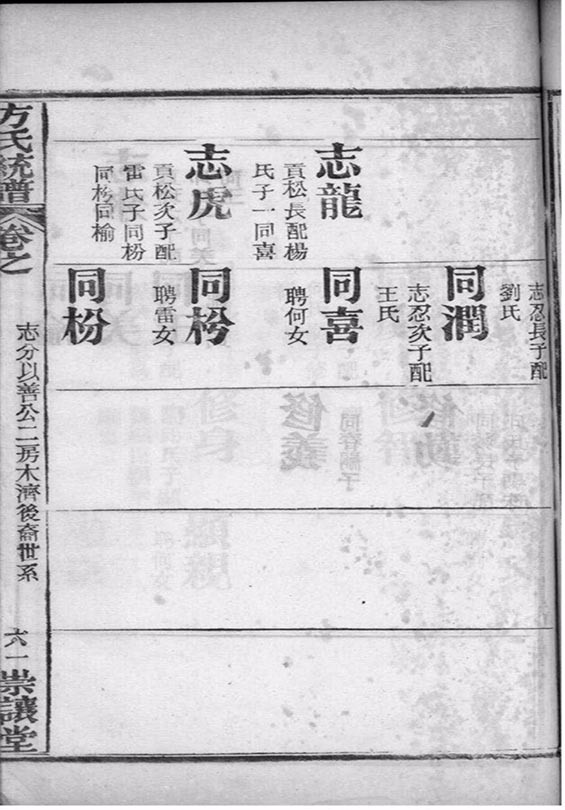 志龍
貢松長配楊
氏子一同喜
志虎
貢松次子配
雷氏子同枌
同 同榆
志忍長子配
劉氏
同潤
志忍次子配
王氏
同喜
聘何女
同
聘雷女
同枌
方氏統譜
卷之
志分以善公二房木濟後裔世系
六一
崇讓堂